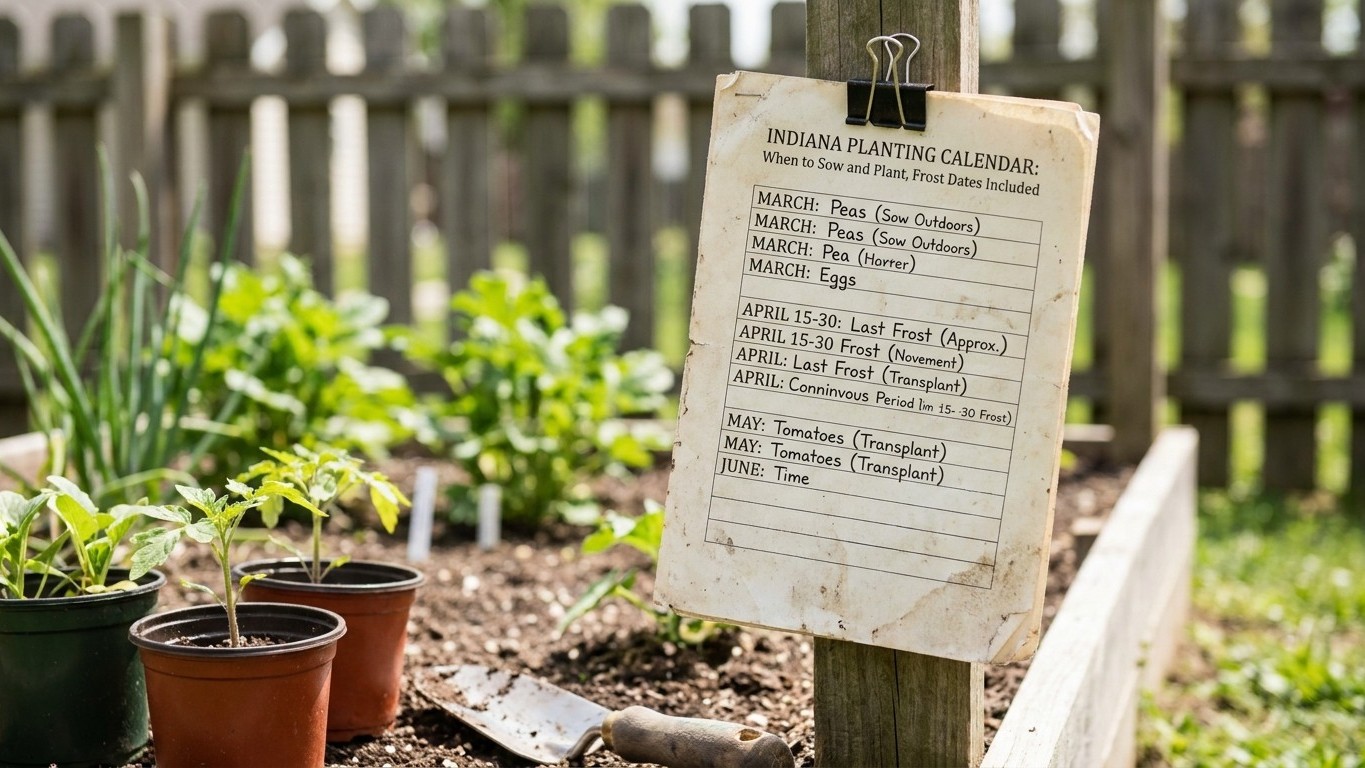 INDIANA PLANTING CALENDAR:
When to Sow and Plant, Frost Dates Included
MARCH: Peas (Sow Outdoors)
MARCH: Peas (Sow Outdoors)
MARCH: Pea (Horrer)
MARCH: Eggs
APRIL 15-30: Last Frost (Approx.)
APRIL 15-30 Frost (Novement)
APRIL: Last Frost (Transplant)
APRIL: Conninvous Period lim 15- -30 Frost)
MAY: Tomatoes (Transplant)
MAY: Tomatoes (Transplant)
JUNE: Time